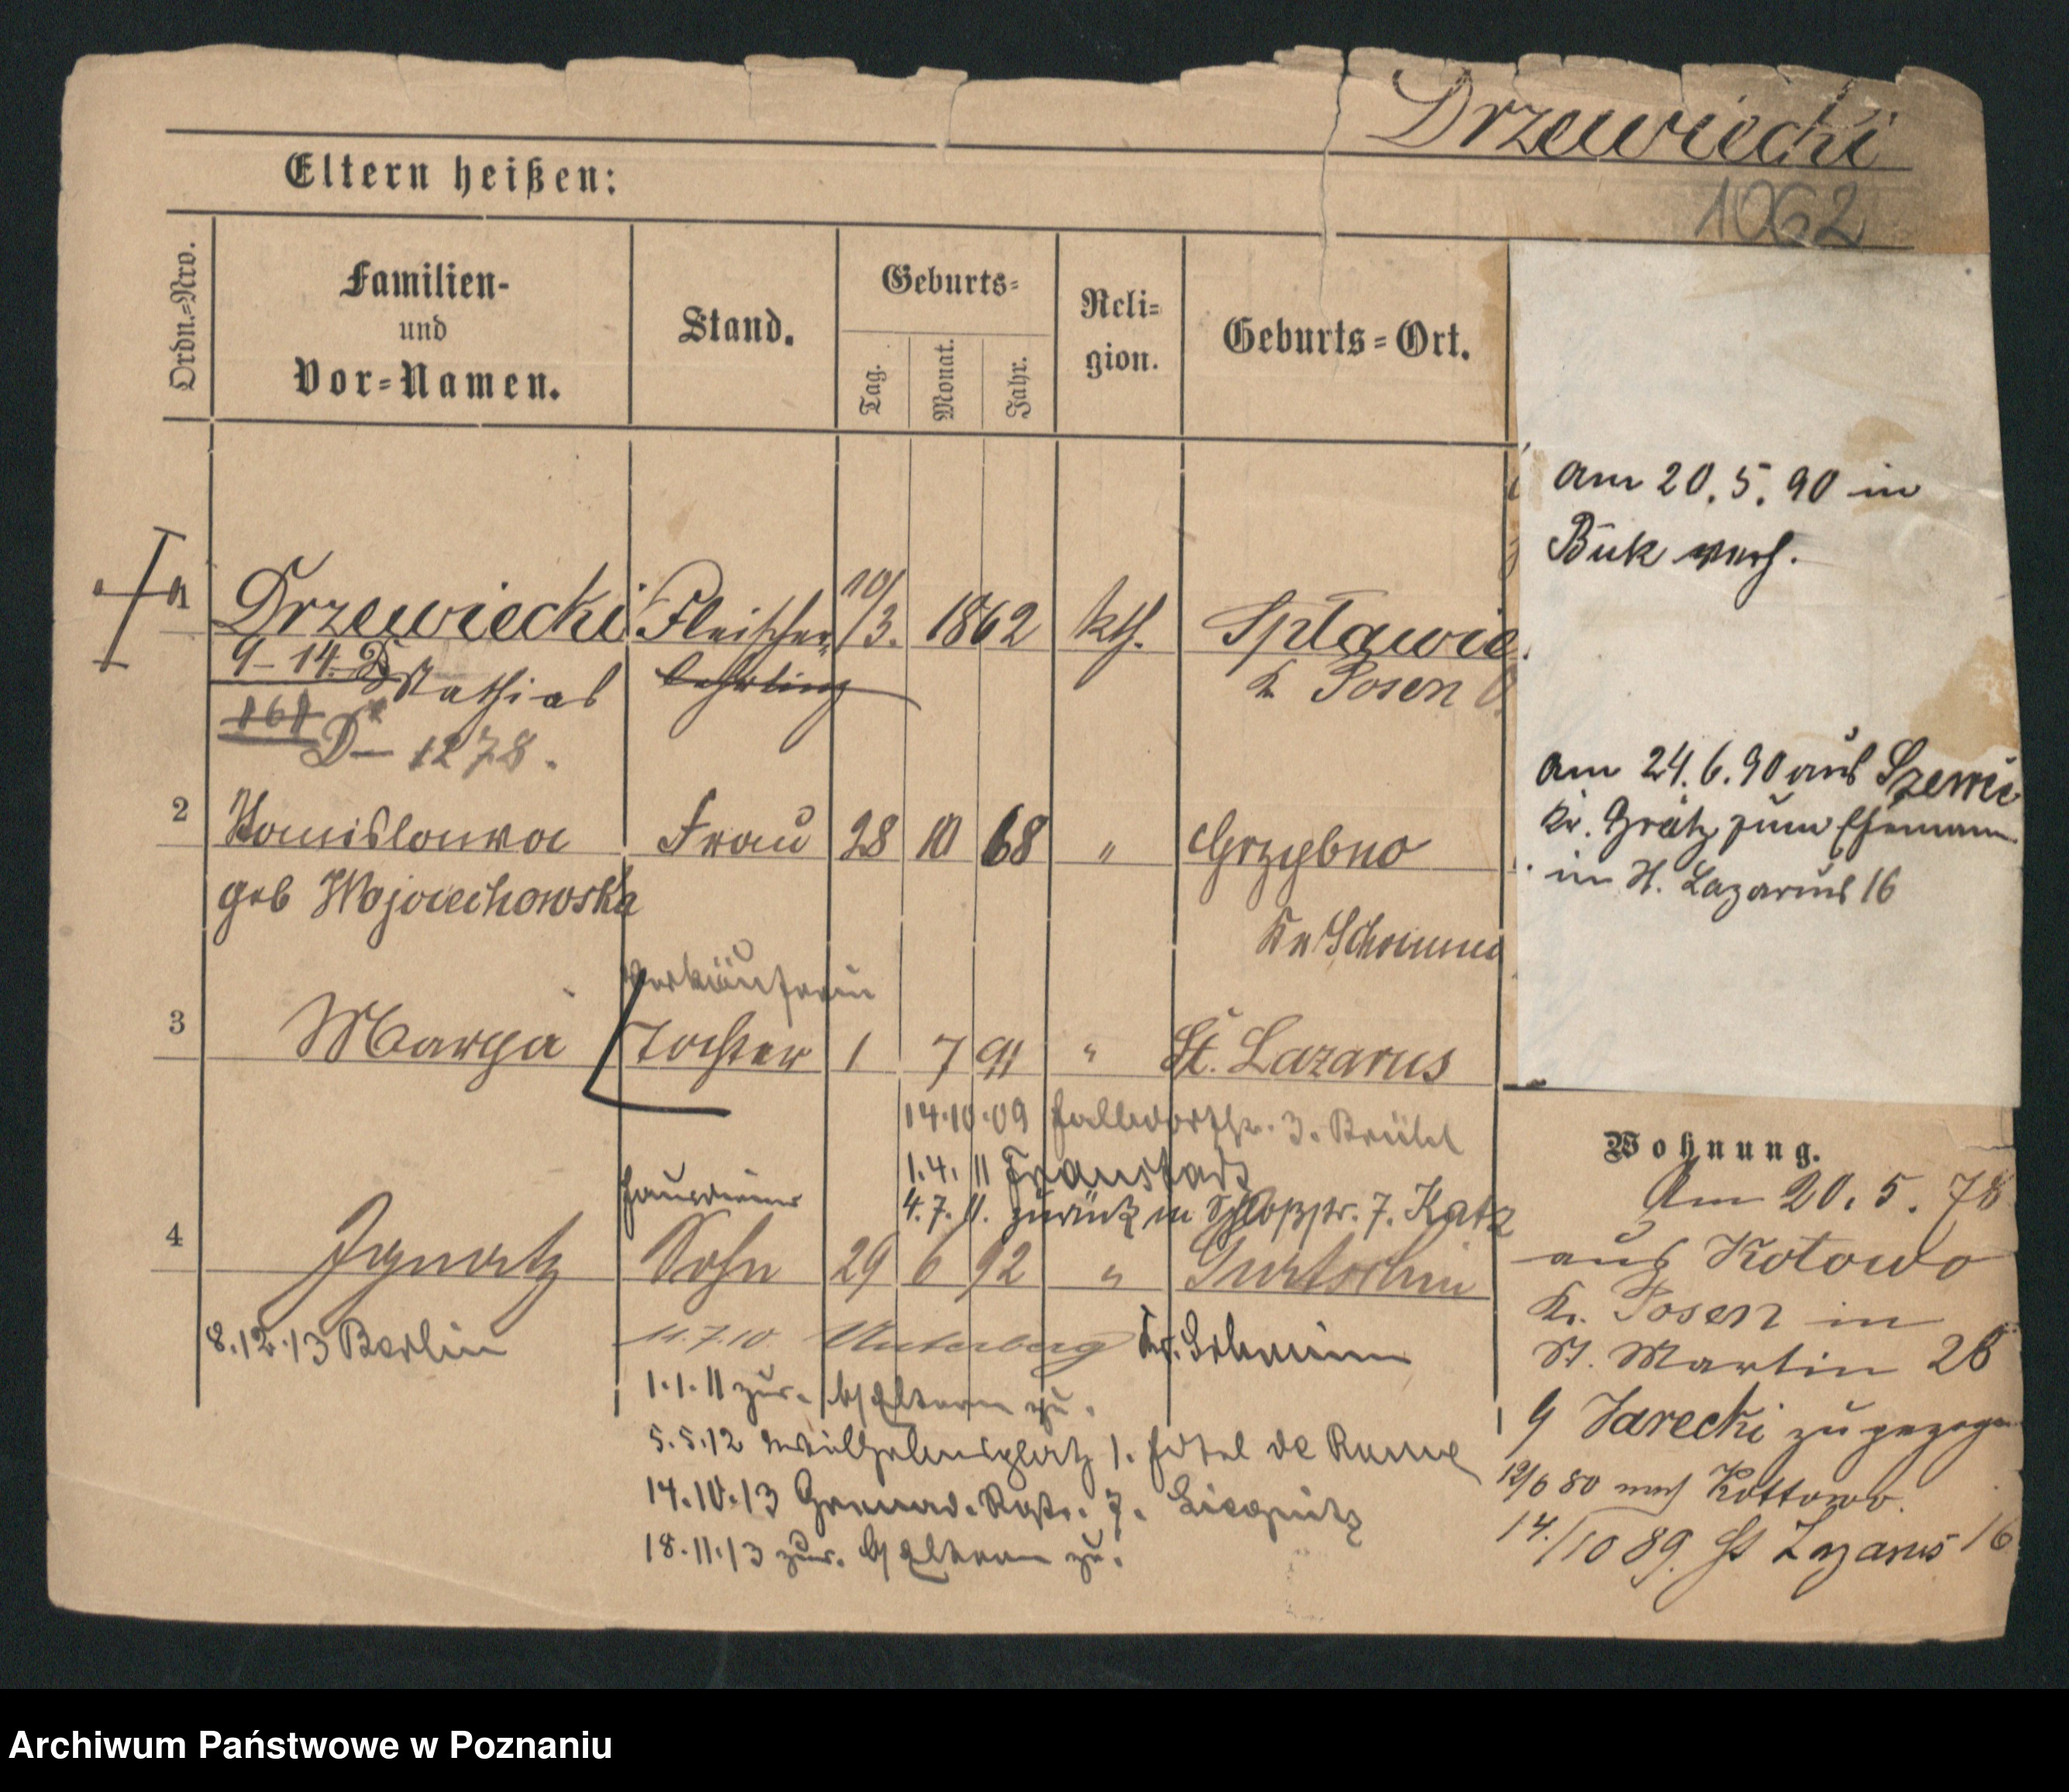 Drzewiecki
1062
Eltern heißen:
Ordn.-Nro.
Familien-
und
Vor-Namen.
Stand.
Geburts-
Tag.
Monat.
Jahr.
Reli-
gion.
Geburts-Ort.
am 20. 5. 90 in
Buk verh.
1 Drzewiecki Fleischer 10/3. 1862 kth. Splawie
9-14 D Mathias Lehrling K Posen O.
168
D- 1278.
am 24. 6. 90 aus
Kr. Grätz zum Ehemann
in St. Lazarus 16
2 Stanislawa Frau 28 10 68 " Grzybno
geb Wojciechowska
Kr Schrimm
Verkäuferin
3 Marya Tochter 1 7 91 " St. Lazarus
14.10.09 3.
1.4.11 Fraustadt
4.7.11. zurück in Schloßstr. 7. Katz
Hausdiener
4 Ignatz Sohn 29 6 92 " Gurtschin
8.12.13 Berlin
11.7.10. Unterberg Kr. Schrimm
1.1.11 zur. b/ Eltern zu.
5.5.12 Wilhelmsplatz 1. Hotel de Rome
14.10.13 Grenad. Rgt. 7. Liegnitz
18.11.13 zur. b/ Eltern zu.
Wohnung.
Am 20. 5. 78
aus Kotowo
Kr. Posen in
St. Martin 26
Jarecki zugezogen
12/6 80 nach Kottowo.
14./10 89. St Lazarus 16
Archiwum Państwowe w Poznaniu